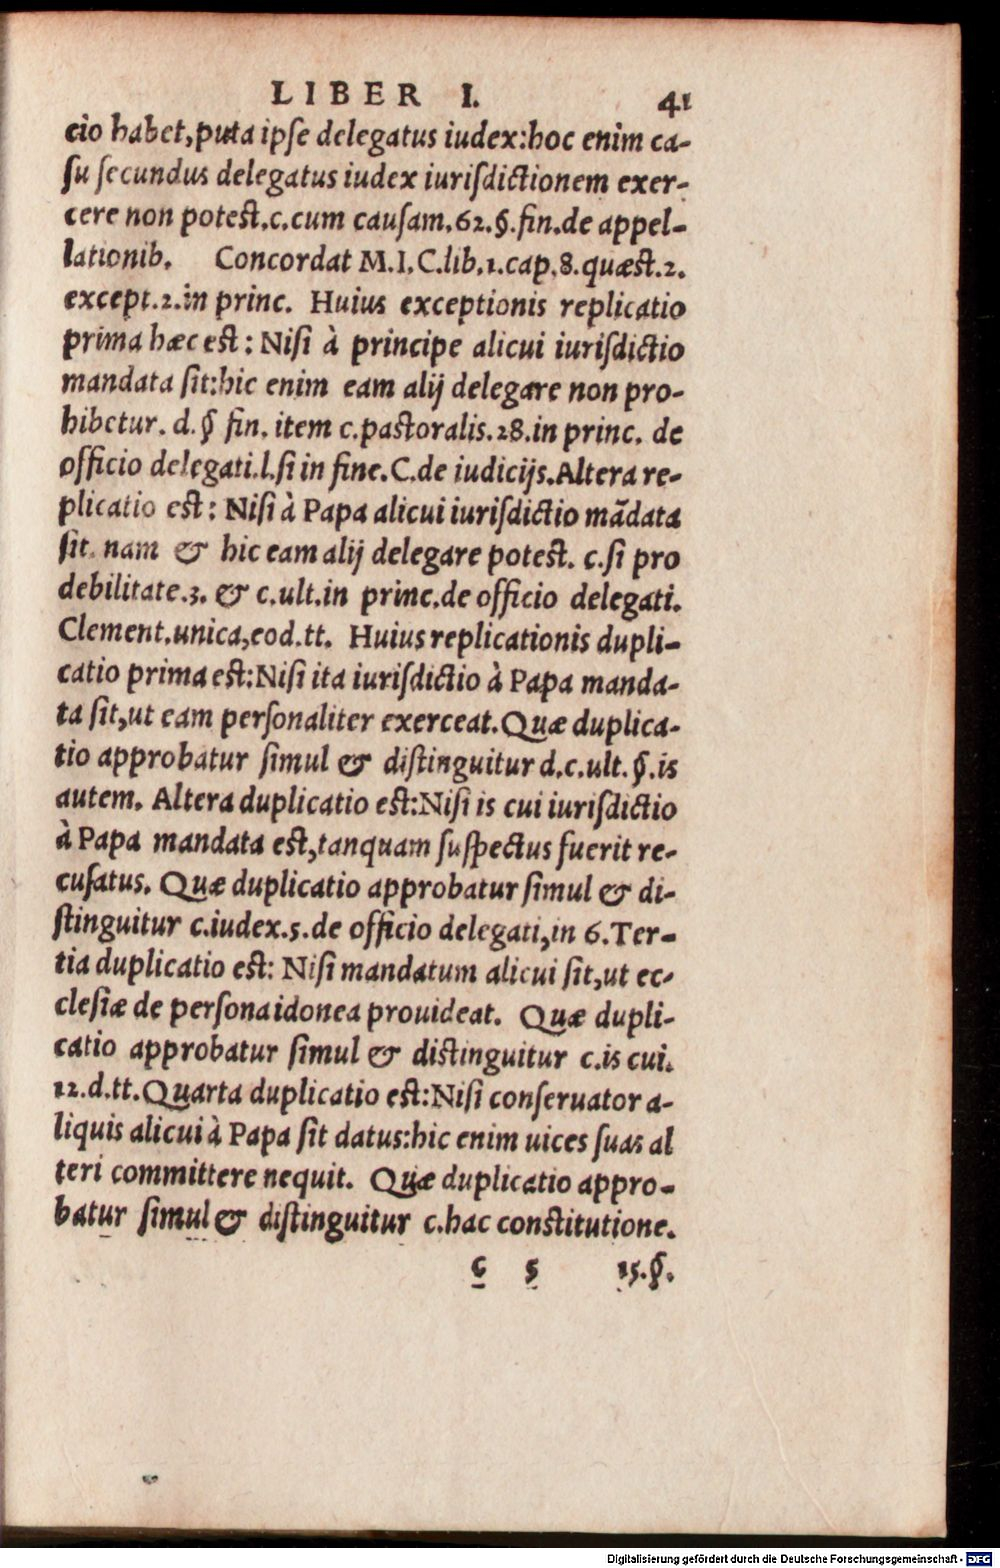 LIBER I. 41
cio habet, puta ipſe delegatus iudex:hoc enim ca-
ſu ſecundus delegatus iudex iuriſdictionem exer-
cere non poteſt.c.cum cauſam.62.§.fin.de appel-
lationib. Concordat M.I.C.lib.1.cap.8.quæſt.2.
except.2.in princ. Huius exceptionis replicatio
prima hæc eſt: Niſi à principe alicui iuriſdictio
mandata ſit:hic enim eam alij delegare non pro-
hibetur. d.§ fin. item c.paſtoralis.28.in princ. de
officio delegati.l.ſi in fine.C.de iudicijs.Altera re-
plicatio eſt: Niſi à Papa alicui iuriſdictio mãdata
ſit. nam & hic eam alij delegare poteſt. c.ſi pro
debilitate.3. & c.ult.in princ.de officio delegati.
Clement.unica,eod.tt. Huius replicationis dupli-
catio prima eſt:Niſi ita iuriſdictio à Papa manda-
ta ſit,ut eam perſonaliter exerceat.Quæ duplica-
tio approbatur ſimul & diſtinguitur d.c.ult.§.is
autem. Altera duplicatio eſt:Niſi is cui iuriſdictio
à Papa mandata eſt,tanquam ſuſpectus fuerit re-
cuſatus. Quæ duplicatio approbatur ſimul & di-
ſtinguitur c.iudex.5.de officio delegati,in 6.Ter-
tia duplicatio eſt: Niſi mandatum alicui ſit,ut ec-
cleſiæ de perſona idonea prouideat. Quæ dupli-
catio approbatur ſimul & diſtinguitur c.is cui.
12.d.tt.Quarta duplicatio eſt:Niſi conſeruator a-
liquis alicui à Papa ſit datus:hic enim uices ſuas al
teri committere nequit. Quæ duplicatio appro-
batur ſimul & diſtinguitur c.hac conſtitutione.
c 5 15.§.
Digitalisierung gefördert durch die Deutsche Forschungsgemeinschaft - DFG